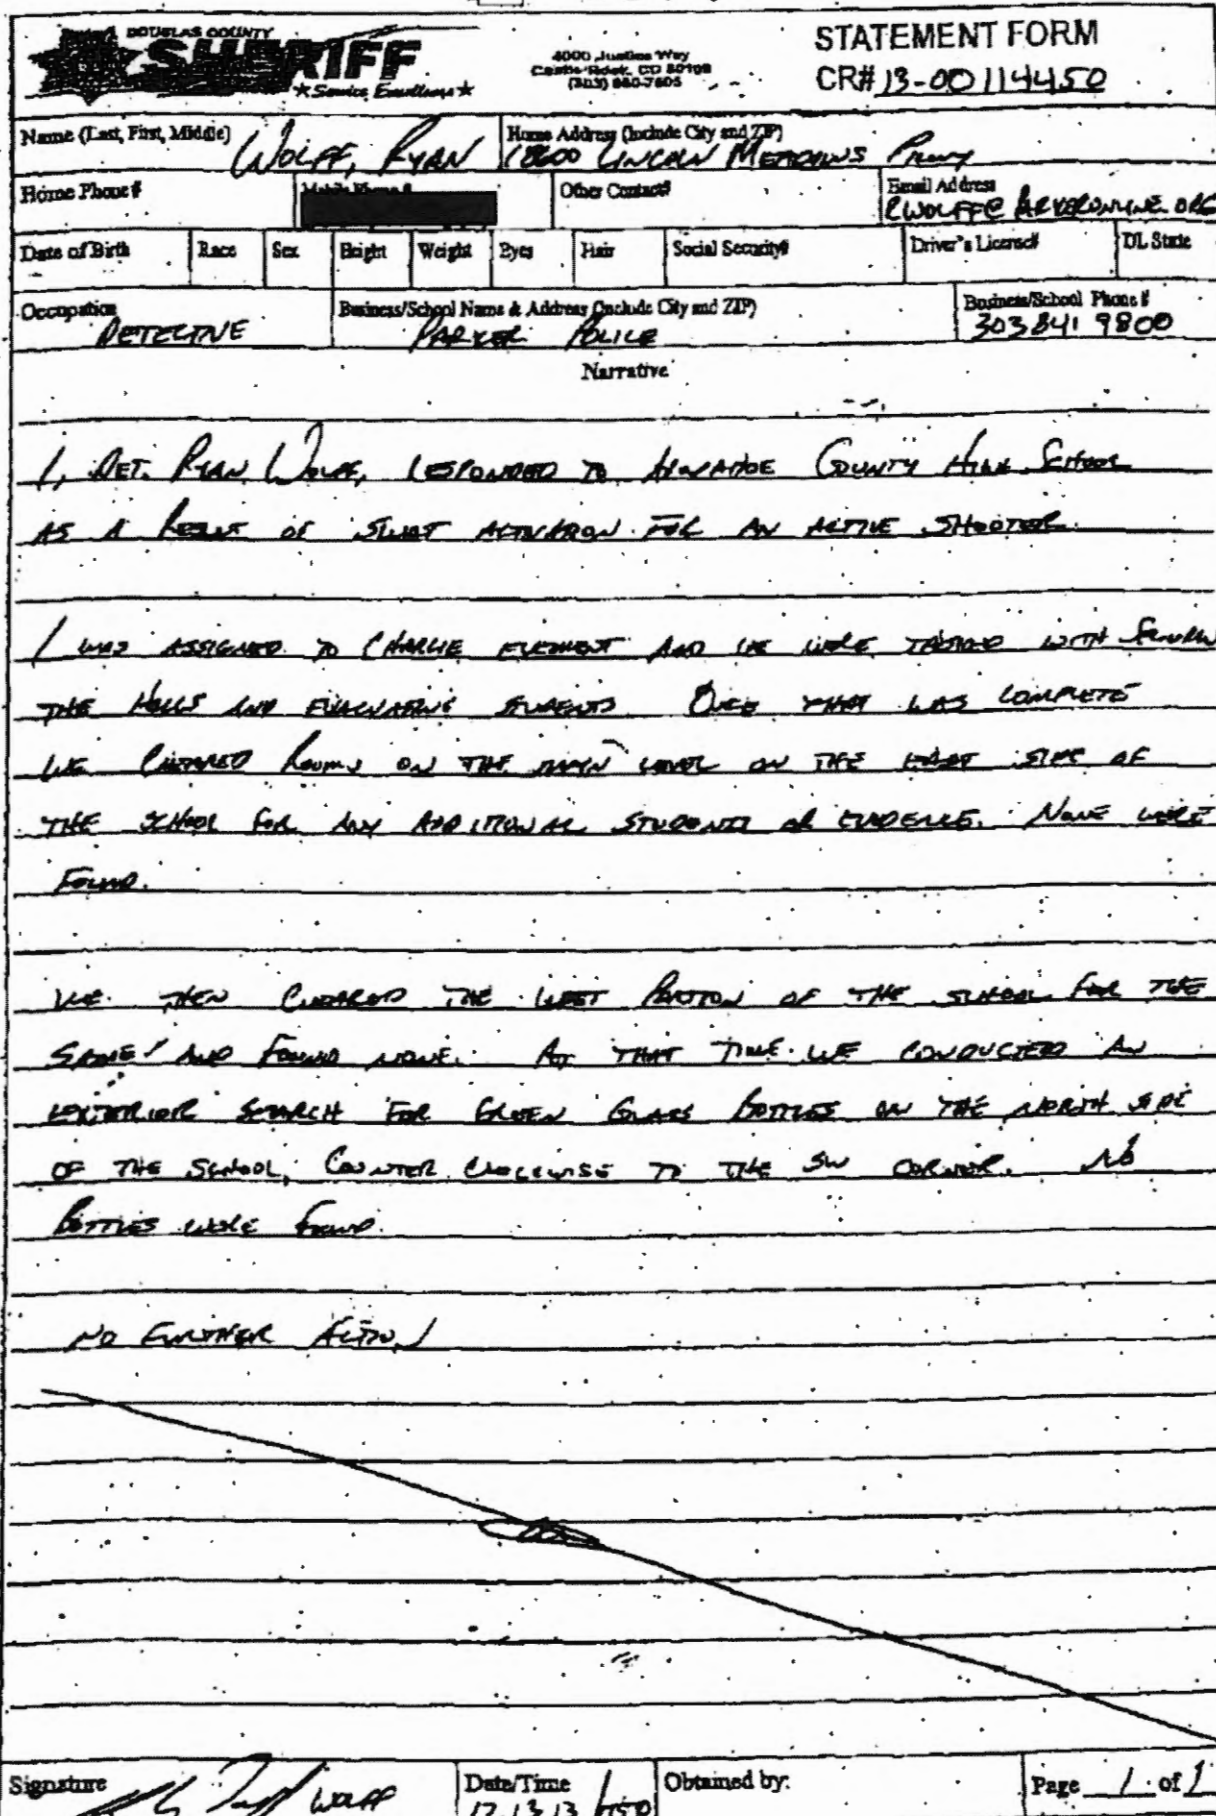 DOUGLAS COUNTY
SHERIFF
★ Service Excellence ★
4000 Justice Way
Castle Rock, CO 80109
(303) 660-7505
STATEMENT FORM
CR# 13-00114450
Name (Last, First, Middle) WOLFF, RYAN
Home Address (Include City and ZIP) 18600 LINCOLN MEADOWS PKWY
Home Phone#
Mobile Phone #
Other Contact#
Email Address RWOLFF@PARKERONLINE.ORG
Date of Birth
Race
Sex
Height
Weight
Eyes
Hair
Social Security#
Driver's License#
DL State
Occupation DETECTIVE
Business/School Name & Address (Include City and ZIP) PARKER POLICE
Business/School Phone # 303 841 9800
Narrative
I, DET. RYAN WOLFF, RESPONDED TO ARAPAHOE COUNTY HIGH SCHOOL
AS A RESULT OF SWAT ACTIVATION FOR AN ACTIVE SHOOTER.
I WAS ASSIGNED TO CHARLIE ELEMENT AND WE WERE TASKED WITH
THE HALLS AND EVACUATING STUDENTS. ONCE THAT WAS COMPLETE
WE CLEARED ROOMS ON THE MAIN LEVEL ON THE EAST SIDE OF
THE SCHOOL FOR ANY ADDITIONAL STUDENTS OR EVIDENCE. NONE WERE
FOUND.
WE THEN CLEARED THE WEST PORTION OF THE SCHOOL FOR THE
SAME AND FOUND NONE. AT THAT TIME WE CONDUCTED AN
EXTERIOR SEARCH FOR GREEN GLASS BOTTLES ON THE NORTH SIDE
OF THE SCHOOL, COUNTER CLOCKWISE TO THE SW CORNER. NO
BOTTLES WERE FOUND.
NO FURTHER ACTION
Signature WOLFF
Date/Time 12.13.13
Obtained by:
Page 1 of 1